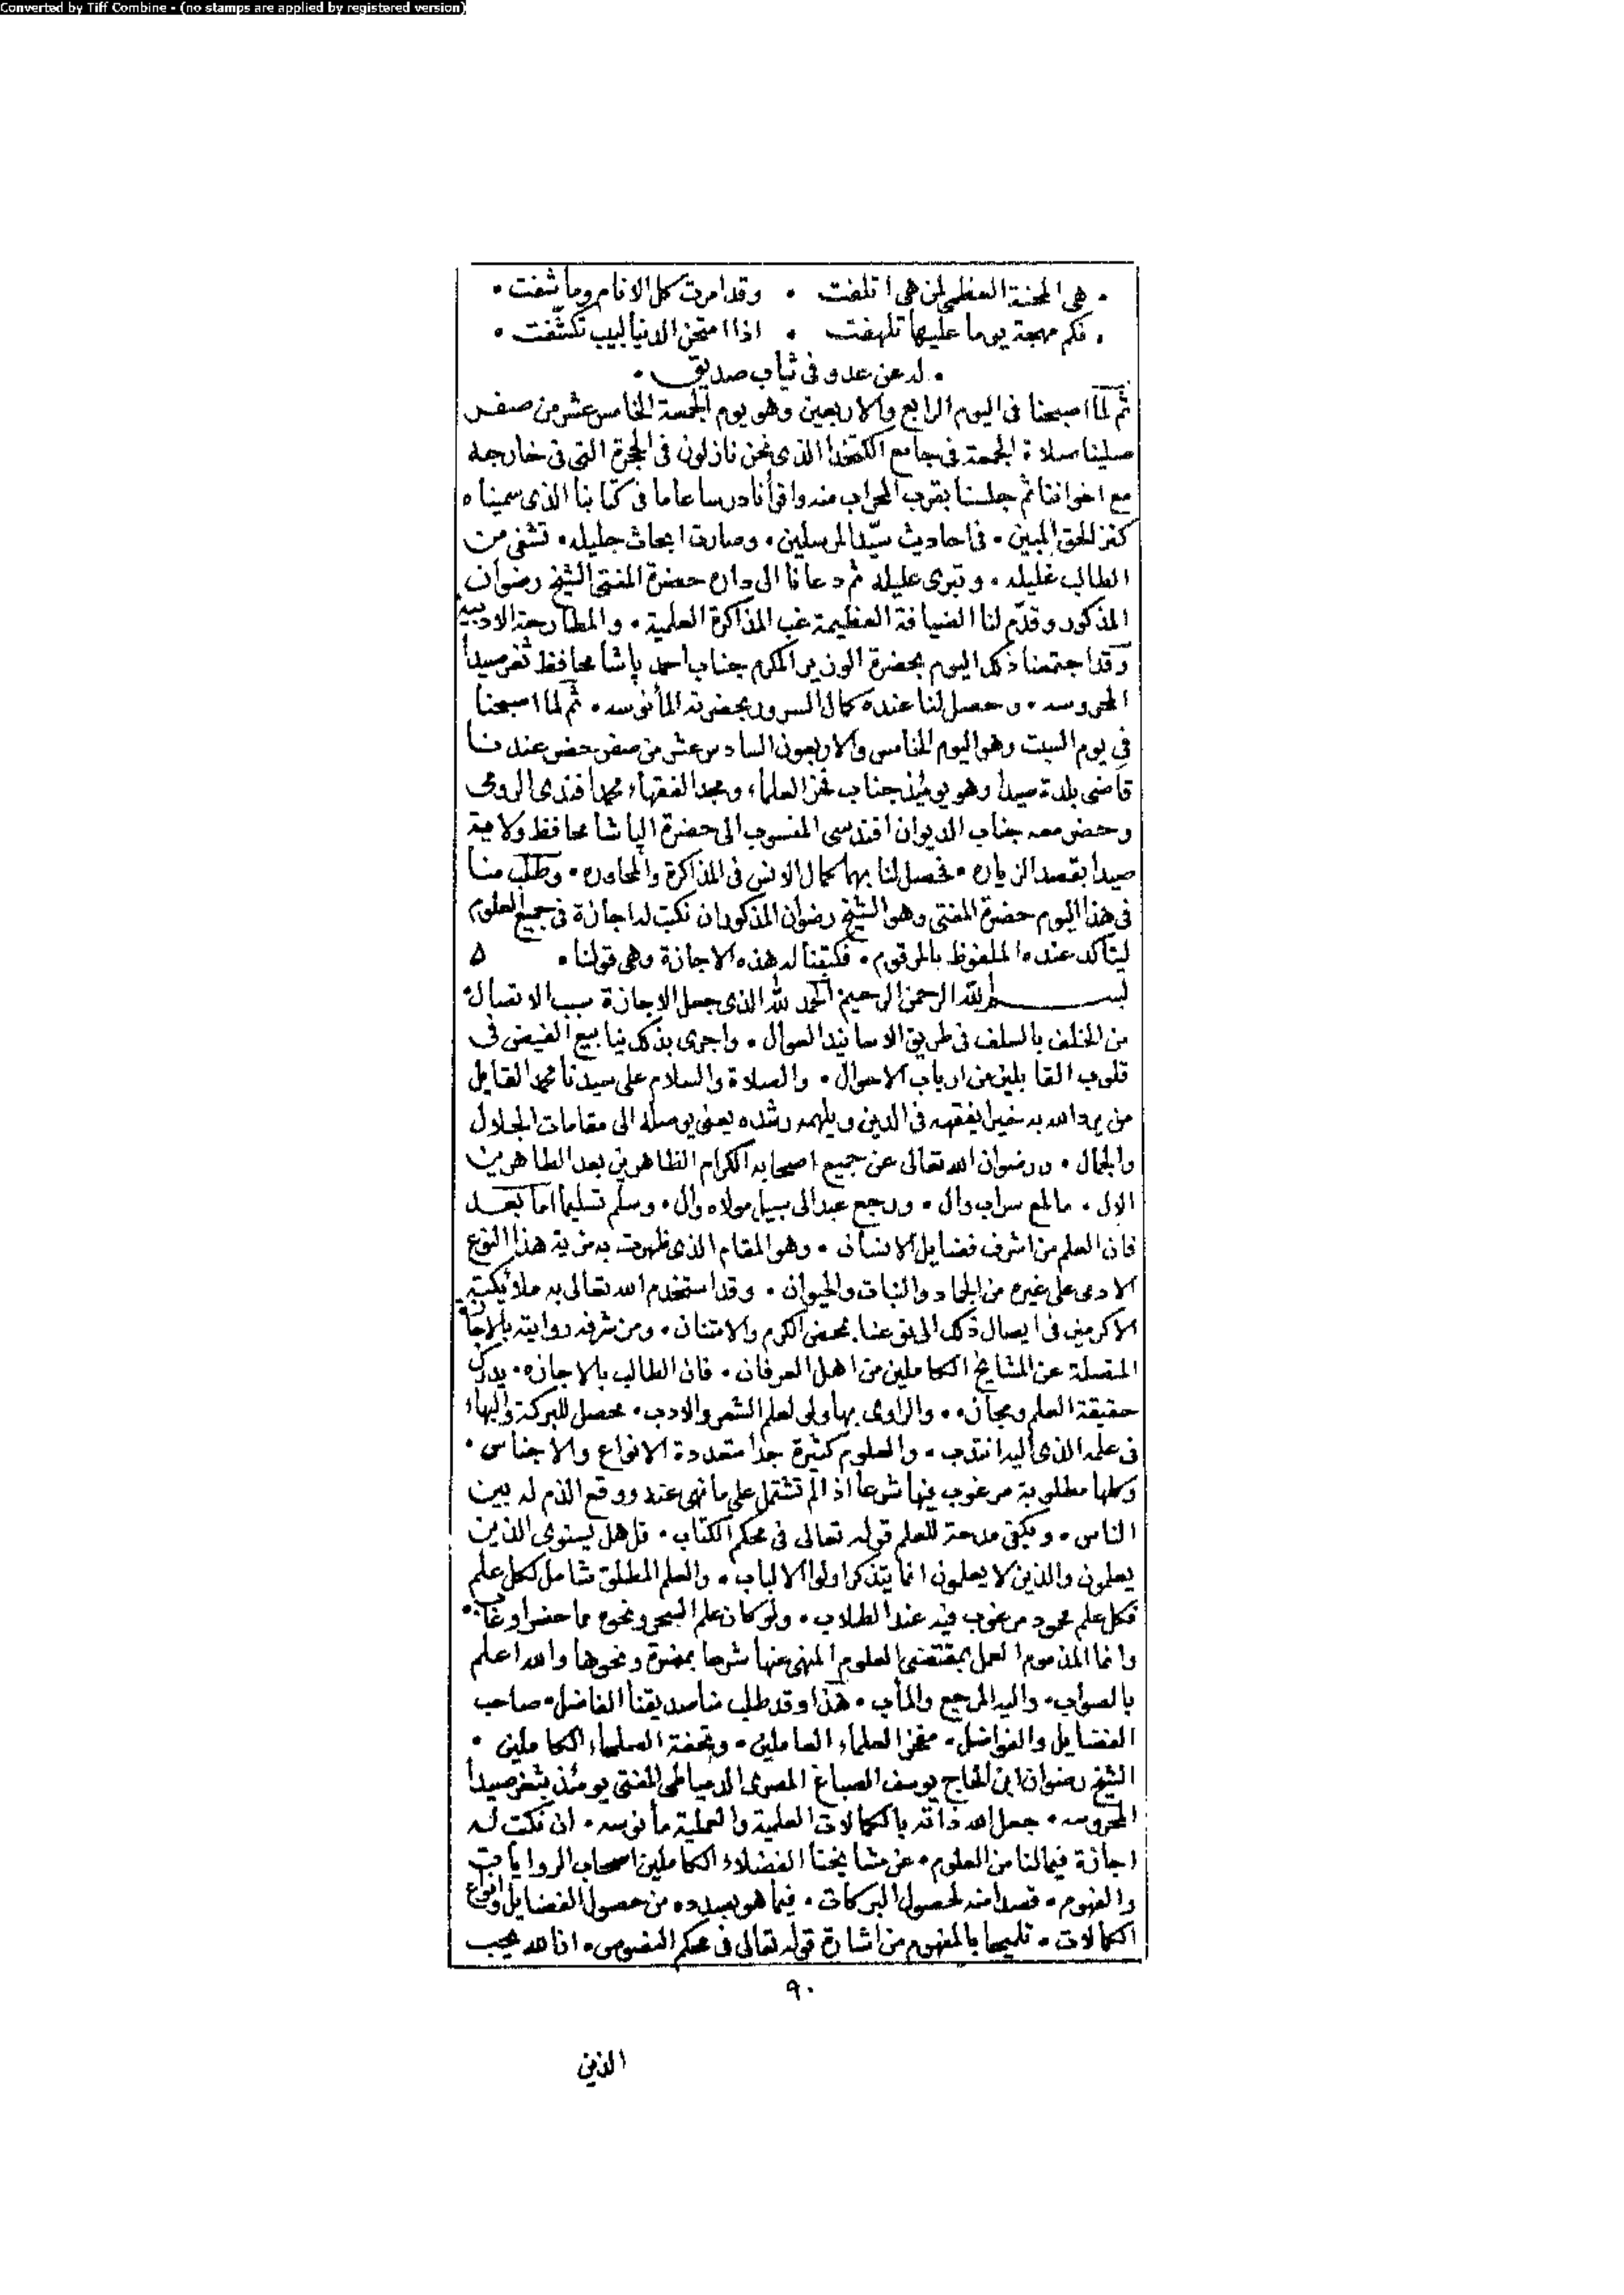 Converted by Tiff Combine - (no stamps are applied by registered version)
. هى المحنة العظمى لمن هى اتلفت . وقد امرت كل الانام وما شفت .
. فكم مهجة يوما عليها تلهفت . اذا امتحن الدنيا لبيب تكشّفت .
. له عن عدو فى ثياب صديق .
ثم لما اصبحنا فى اليوم الرابع والاربعين وهو يوم الجمعة الخامس عشر من صفر
صلينا صلاة الجمعة فى جامع الكتخدا الذى نحن نازلون فى الحجرة التى فى خارجه
مع اخواننا ثم جلسنا بقرب المحراب منه واقرأنا درسا عاما فى كتابنا الذى سميناه
كنز الحق المبين . فى احاديث سيّد المرسلين . وصارت ابحاث جليله . تشفى من
الطالب غليله . وتبرى عليله ثم دعانا الى داره حضرة المفتى الشيخ رضوان
المذكور وقدّم لنا الضيافة العظيمة غب المذاكرة العلمية . والمطارحة الادبية
وقد اجتمعنا ذلك اليوم بحضرة الوزير المكرم جناب احمد پاشا محافظ ثغر صيدا
المحروسه . وحصل لنا عنده كمال السرور بحضرته المأنوسه . ثم لما اصبحنا
فى يوم السبت وهو اليوم الخامس والاربعون السادس عشر من صفر حضر عندنا
قاضى بلدة صيدا وهو يومئذ جناب فخر العلماء ومجد الفقهاء محمد افندى الرومى
وحضر معه جناب الديوان افندسى المنسوب الى حضرة الپاشا محافظ ولاية
صيدا بقصد الزياره . فحصل لنا بهما كمال الانس فى المذاكرة والمحاوره . وطلب منا
فى هذا اليوم حضرة المفتى وهو الشيخ رضوان المذكور ان نكتب له اجازة فى جميع العلوم
ليتأكد عنده الملفوظ بالمرقوم . فكتبنا له هذه الاجازة وهى قولنا . ه
بسم الله الرحمن الرحيم الحمد لله الذى جعل الاجازة سبب الاتصال
من الخلف بالسلف فى طريق الاسانيد العوال . واجرى بذلك ينابيع الفيض فى
قلوب القابلين من ارباب الاحوال . والصلاة والسلام على سيدنا محمد القايل
من يرد الله به خيرا يفقهه فى الدين ويلهمه رشده يعنى يوصله الى مقامات الجلال
والجمال . ورضوان الله تعالى عن جميع اصحابه الكرام الظاهرين بعد الطاهرين
الاول . ما لمع سراب وال . ورجع عبد الى سبيل مولاه وال . وسلم تسليما اما بعد
فان العلم من اشرف فضايل الانسان . وهو المقام الذى ظهرت به مزية هذا النوع
الادمى على غيره من الجماد والنبات والحيوان . وقد استخدم الله تعالى به ملائكته
الاكرمين فى ايصال ذلك الى نوعنا بمحض الكرم والامتنان . ومن شرفه روايته بالاجازة
المتصلة عن المشايخ الكاملين من اهل العرفان . فان الطالب بالاجازه . يدرك
حقيقة العلم ومجازه . والراوى بها ولى لعلم الشعر والادب . محصل للبركة والبهاء
فى علمه الذى اليه انتدب . والعلوم كثيرة جدا متعددة الانواع والاجناس .
وكلها مطلوبة مرغوب فيها شرعا اذ الم تشتمل على ما نهى عنه ووقع الذم له بين
الناس . ويكفى مدحة للعلم قوله تعالى فى محكم الكتاب . قل هل يستوى الذين
يعلمون والذين لا يعلمون انما يتذكر اولوا الالباب . والعلم المطلق شامل لكل علم
فكل علم محمود مرغوب فيه عند الطلاب . ولو كان علم السحر ونحوه مما حضر او غاب .
وانما المذموم العمل بمقتضى العلوم المنهى عنها شرعا بمضرة ونحوها والله اعلم
بالصواب . واليه المرجع والمأب . هذا وقد طلب منا صديقنا الفاضل . صاحب
الفضايل والفواضل . مفخر العلماء العاملين . وتحفة الصلحاء الكاملين .
الشيخ رضوان ابن الحاج يوسف الصباغ المصرى الدمياطى المفتى يومئذ بثغر صيدا
المحروسه . جعل الله ذاته بالكمالات العلمية والعملية مأنوسه . ان نكتب له
اجازة فيما لنا من العلوم . عن مشايخنا الفضلاء الكاملين اصحاب الروايات
والفهوم . قصدا منه لحصول البركات . فيما هو بصدده من حصول الفضايل وانواع
الكمالات . تلميحا بالمفهوم من اشارة قوله تعالى فى محكم النصوص . ان الله يحب
٩٠
الذين